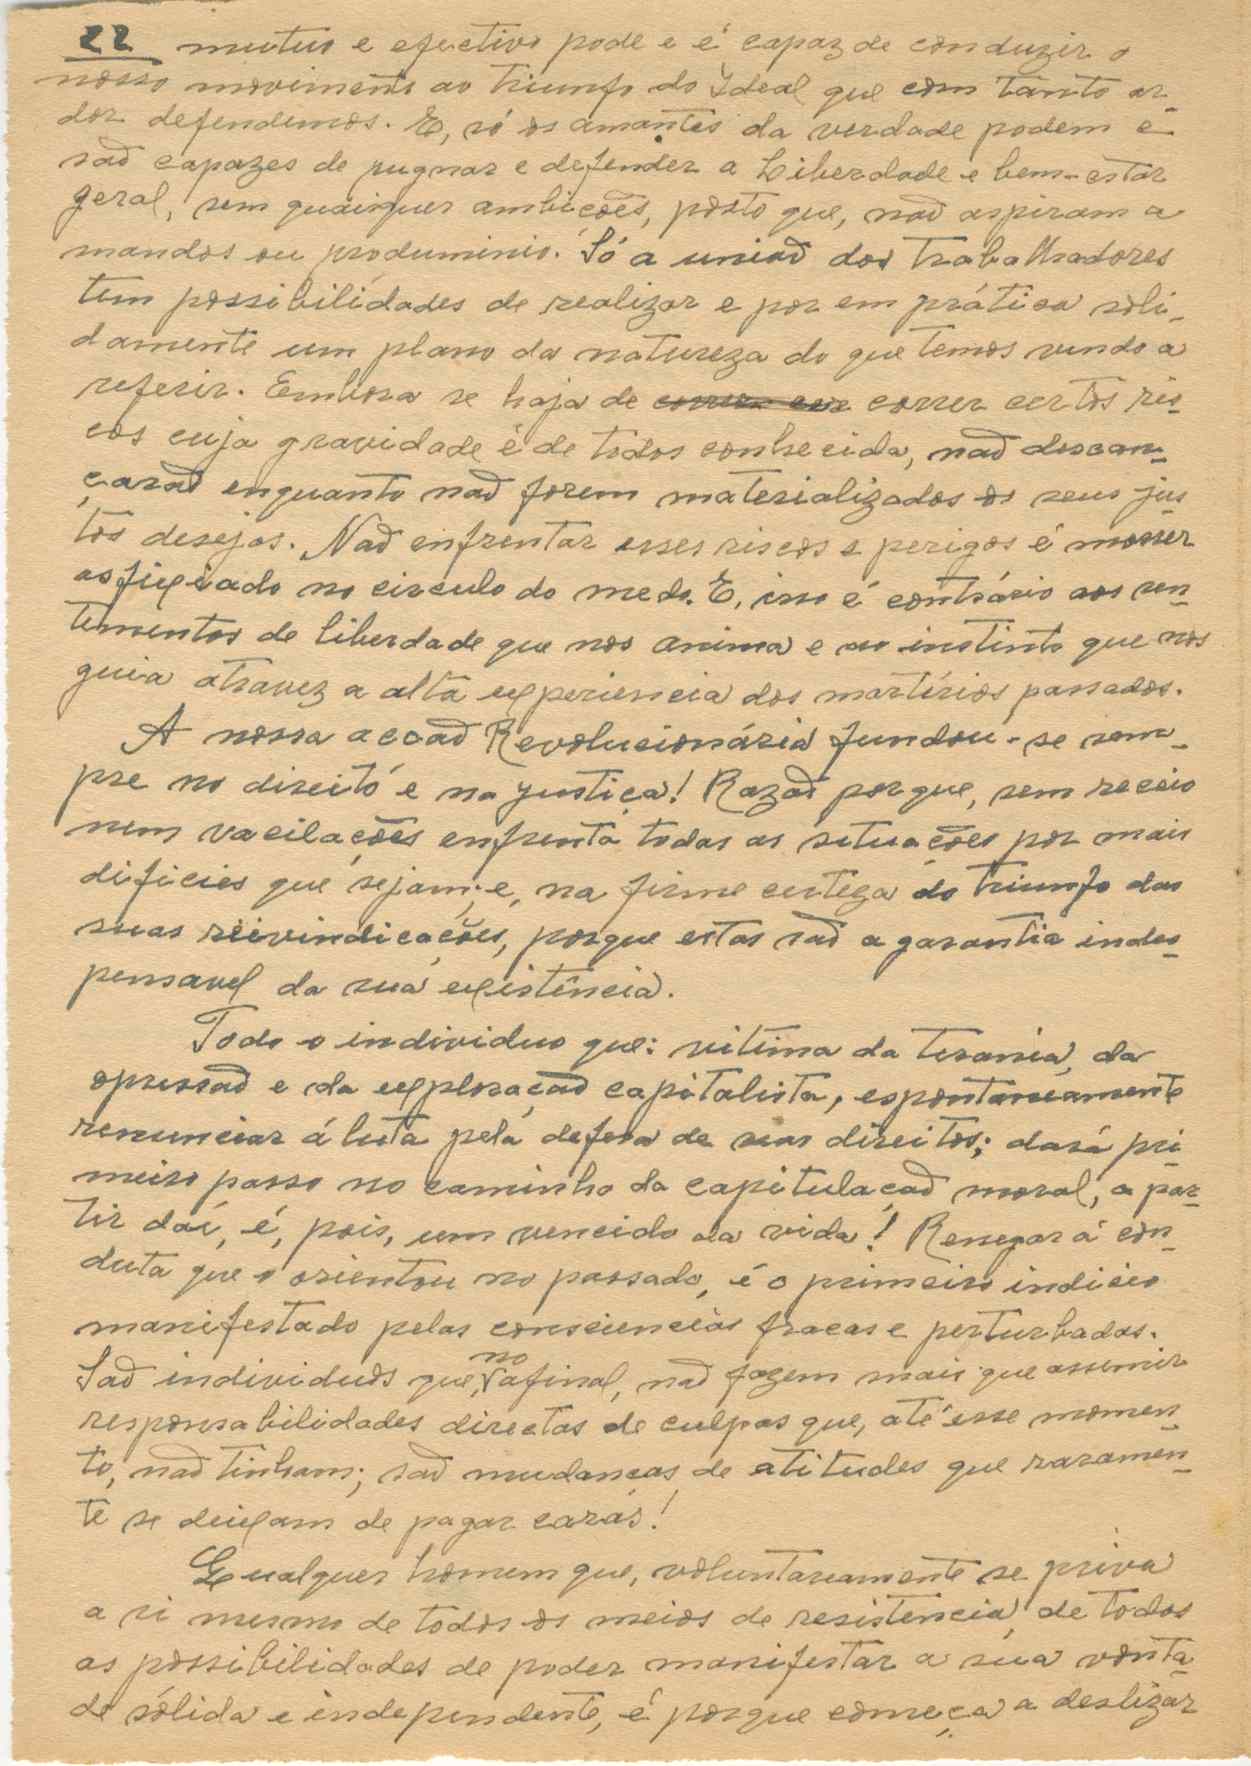 22 mutuo e efectivo pode e é capaz de conduzir o
nosso movimento ao triunfo do Ideal que com tanto ar-
dor defendemos. E, só os amantes da verdade podem e
são capazes de pugnar e defender a Liberdade e bem-estar
geral, sem quaisquer ambições, pôsto que, não aspiram a
mandos ou produminio. Só a união dos trabalhadores
tem possibilidades de realizar e por em prática soli-
damente um plano da natureza do que temos vindo a
referir. Embora se haja de correr correr certos ris-
cos cuja gravidade é de todos conhecida, não descan-
çarão enquanto não forem materializados os seus jus
tos desejos. Não enfrentar esses riscos e perigos é morrer
asfixiado no circulo do medo. E, isso é contrário aos sen-
timentos de liberdade que nos anima e ao instinto que nos
guia atravez a alta experiencia dos martírios passados.
A nossa acção Revolucionária fundou-se sem-
pre no direito e na justiça! Razão porque, sem receio
nem vacilações enfrenta todas as situações por mais
dificies que sejam; e, na firme certeza do triunfo das
suas reivindicações, porque estas são a garantia indes-
pensavel da sua existência.
Todo o individuo que: vitima da tirania, da
opressão e da exploração capitalista, espontaneamente
renunciar á luta pela defesa de seus direitos; dará pri
meiro passo no caminho da capitulação moral, a par-
tir daí, é, pois, um vencido da vida! Renegar á con-
duta que o orientou no passado, é o primeiro indicio
manifestado pelas consciencias fracas e perturbadas.
São individuos que, no afinal, não fazem mais que assumir
responsabilidades directas de culpas que, até esse momen-
to, não tinham; são mudanças de atitudes que raramen-
te se deixam de pagar caras!
Qualquer homem que, voluntareamente se priva
a si mesmo de todos os meios de resistência, de todas
as possibilidades de poder manifestar a sua vonta-
de sólida e independente, é porque começa a deslizar